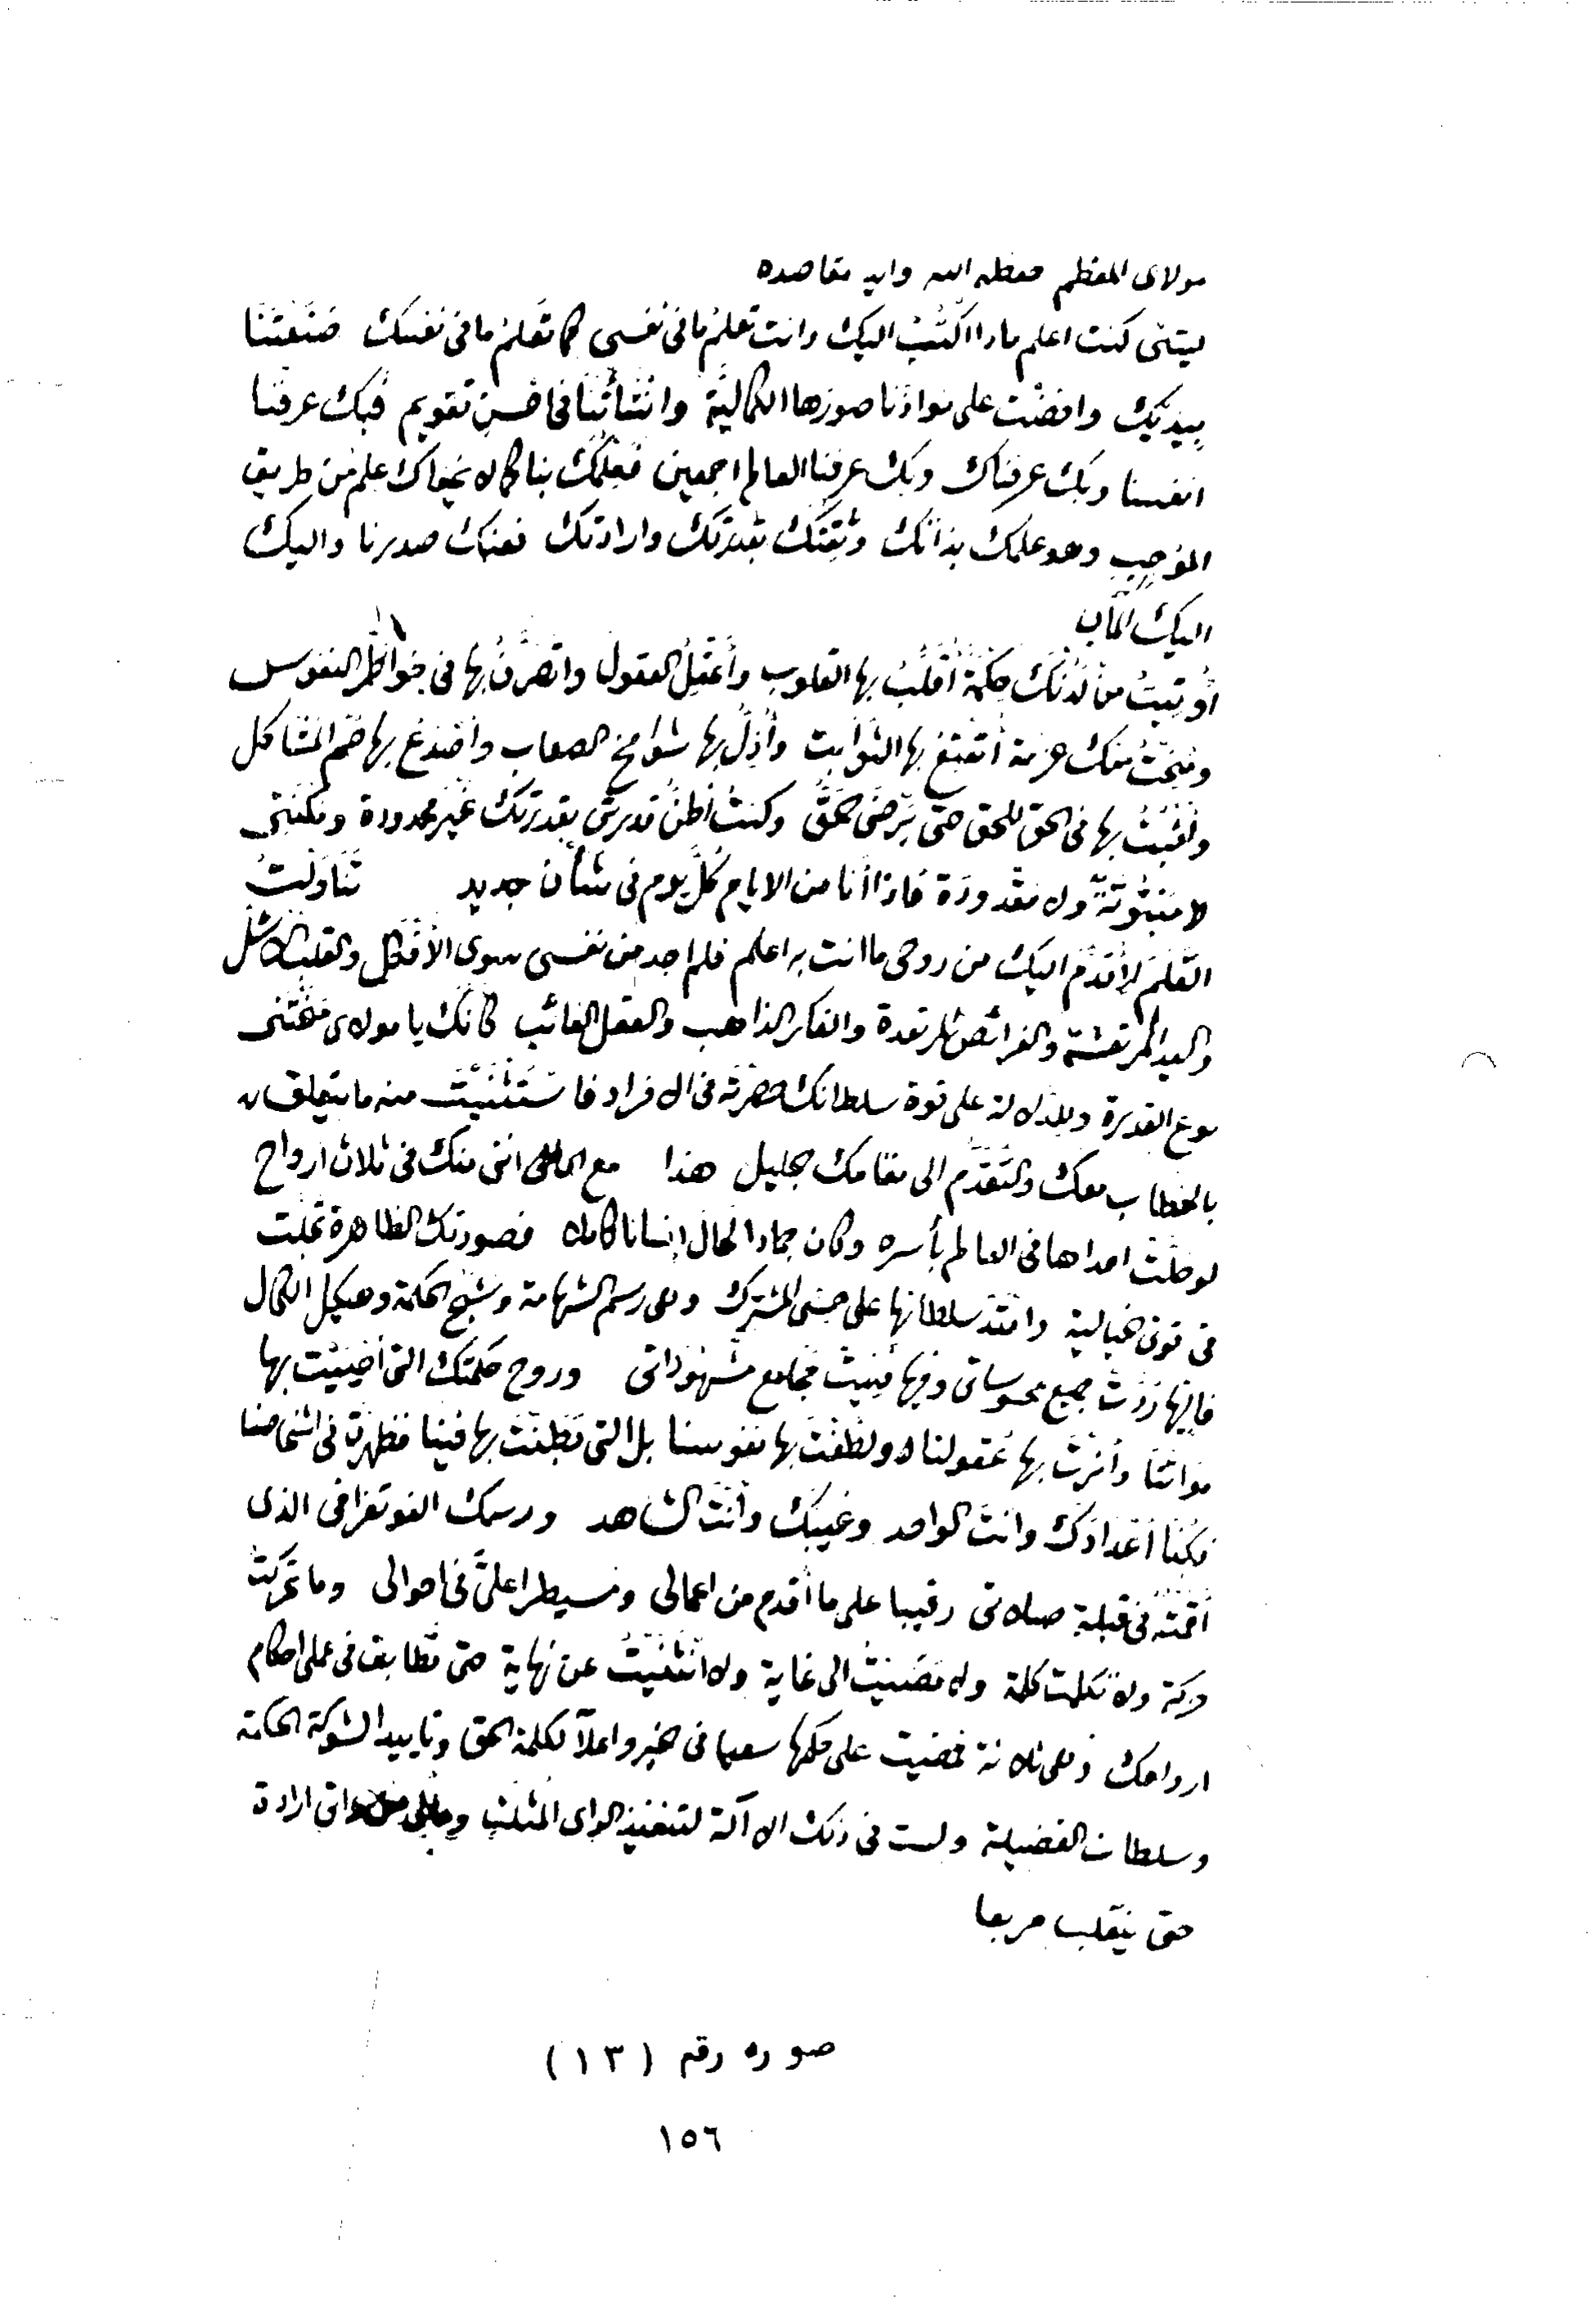 مولاى المعظم حفظه الله وايد مقاصده
ليتنى كنت اعلم ماذا اكتُبُ اليك وانت تعلمُ ما فى نفسى كما تَعلمُ ما فى نفسك صَنَعْتَنَا
بيديْك وافضْت على موادّنا صورَها الكماليّة وانشأتنا فى احسن تقويم فبك عرفنا
انفسنا وبك عرفناك وبك عرفنا العالم اجمعين فعِلمُك بنا كما لا يخفاك علم من طريق
الموجب وهو علمك بذاتك وثِقتك بقدرتك وارادتك فعنك صدرنا واليك
اليك المآب
أوتيتُ من لدنك حكمة أقلّبُ بها القلوب وأعقِلُ العقول واتصرّفُ بها فى خواطر النفوس
ومُنِحْتُ منك عزمة أتعتع بها الثوابت وأُذلّ بها شوامخ الصعاب وأصدع بها صُمّ المشاكل
وأثبُتُ بها فى الحق للحق حتى يرضى الحقّ وكنتُ أظنّ قدرتى بقدرتك غير محدودة ومُكنتى
لا مبتوتة ولا مقدودَة فاذا أنا من الايام كلّ يوم فى شأن جديد تناولْتُ
القلم لأقدّم اليك من روحى ما انت به اعلم فلم اجد من نفسى سوى الأفكل والقلب الاشل
واليد المرتعشة والفرائص المرتعدة والفكر الذاهب والعقل الغائب كأنك يا مولاى منحتنى
نوع القدرة وللدلالة على قوة سلطانك حصرته فى الافراد فاستثنيت منه ما يتعلق
بالخطاب معك والتقدّم الى مقامك الجليل هذا مع اننى منك فى ثلاث ارواح
لو حلّت احداها فى العالم بأسره وكان جمادا لحال إنسانا كاملا فصورتك الظاهرة تجلّت
فى قوتى الخيالية وامتدّ سلطانها على حسى المشترك وهى رسم الشهامة وشبح الحكمة وهيكل الكمال
فاليها رُدّت جميع محسوساتى وفيها فنيت مجامع مشهوداتى وروح حكمتك التى أحييت بها
مواتنا وأنَرْتَ بها عقولنا ولطّفت بها نفوسنا بل التى بَطَنْت بها فينا فظهرت فى اشخاصنا
فكُنّا أعدادك وانت الواحد وغيبك وأنت الشاهد ورسمك الفوتغرافى الذى
أقمته فى قبلة صلاتى رقيبا على ما أقدم من اعمالى ومسيطرا علىّ فى احوالى وما تحركت
حركة ولا تكلمت كلمة ولا مضيت الى غاية ولا انثنيت عن نهاية حتى تطابق فى عملى احكام
ارواحك وهى ثلاثة فمضيت على حكمها سعيا فى الخير واعلآ لكلمة الحق وتاييدا لشوكة الحكمة
وسلطان الفضيلة ولست فى ذلك الا آلة لتنفيذ الراى المثلث وما لى من ذاتى ارادة
حتى ينقلب مربعا
صوره رقم (١٣)
١٥٦